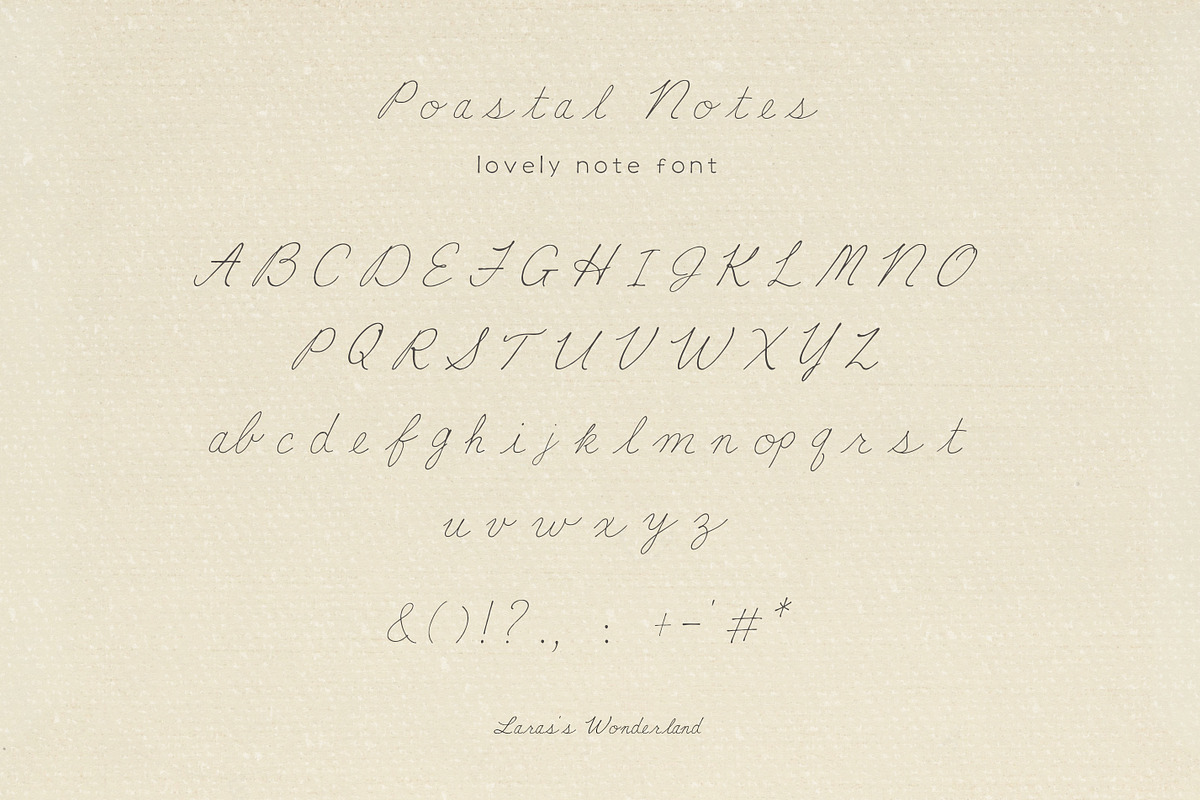 Poastal Notes
lovely note font
A B C D E F G H I J K L M N O
P Q R S T U V W X Y Z
a b c d e f g h i j k l m n o p q r s t
u v w x y z
& ( ) ! ? . , : + - ' # *
Laras's Wonderland